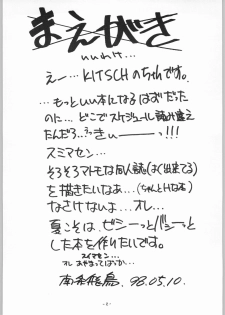 まえがき
いいわけ…
えー… KITSCHのちれです。
…もっといい本になるはずだった
のに… どこでスケジュール読み違え
たんだろ…?っきぃーーーっ!!!
スミマセン
そろそろマトモな同人誌(よく出来てる)
を描きたいなあ…(ちゃんとHな本)
なさけないよ…オレ…
夏こそは、ビシーっとバシーっと
した本を作りたいです。
スイマセン…
オレ あやまってばっか…
98.05.10.